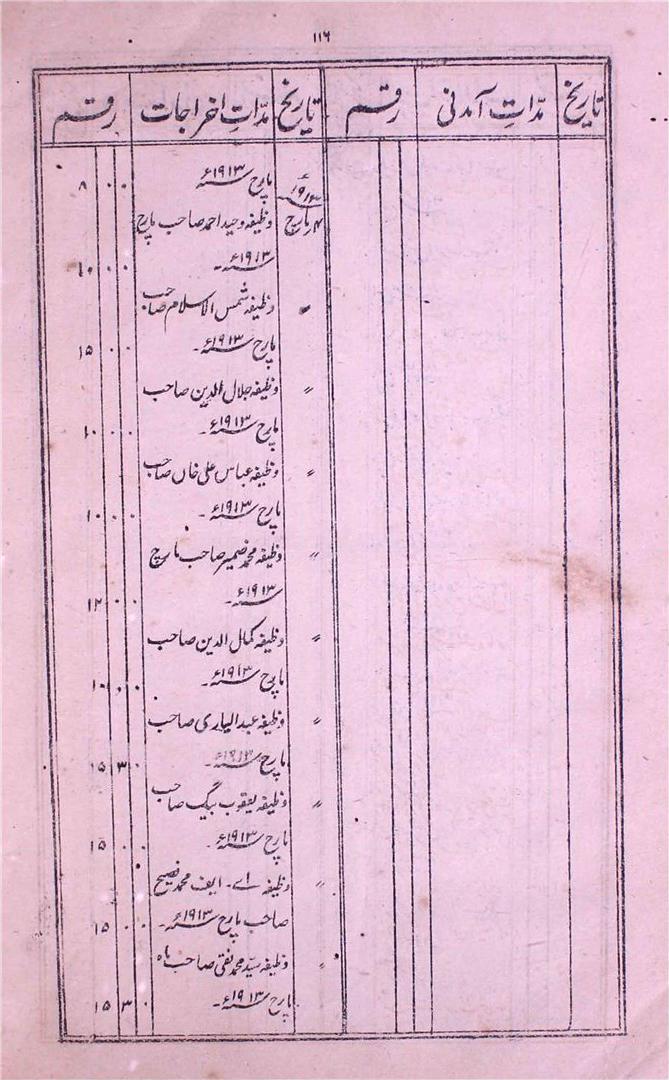 ۱۱۶
تاریخ مدّاتِ آمدنی رقم تاریخ مدّاتِ اخراجات رقم
مارچ ۱۹۱۳ء ۰ ۰ ۸
۱۹۱۳ء
۴؍مارچ وظیفہ وحید احمد صاحب مارچ
۱۹۱۳ء۔ ۰ ۰ ۱۰
〃 وظیفہ شمس الاسلام صاحب
مارچ ۱۹۱۳ء۔ ۰ ۰ ۱۵
〃 وظیفہ جلال الدین صاحب
مارچ ۱۹۱۳ء۔ ۰ ۰ ۱۰
〃 وظیفہ عباس علی خاں صاحب
مارچ ۱۹۱۳ء۔ ۰ ۰ ۱۰
〃 وظیفہ محمد ضمیر صاحب مارچ
۱۹۱۳ء۔ ۰ ۰ ۱۲
〃 وظیفہ کمال الدین صاحب
مارچ ۱۹۱۳ء۔ ۰ ۰ ۱۰
〃 وظیفہ عبدالباری صاحب
مارچ ۱۹۱۳ء۔ ۰ ۳ ۱۵
〃 وظیفہ یعقوب بیگ صاحب
مارچ ۱۹۱۳ء۔ ۰ ۰ ۱۵
〃 وظیفہ اے۔ ایف محمد فصیح
صاحب مارچ ۱۹۱۳ء۔ ۰ ۰ ۱۵
〃 وظیفہ سیّد محمد نقی صاحب ماہ
مارچ ۱۹۱۳ء۔ ۰ ۳ ۱۵